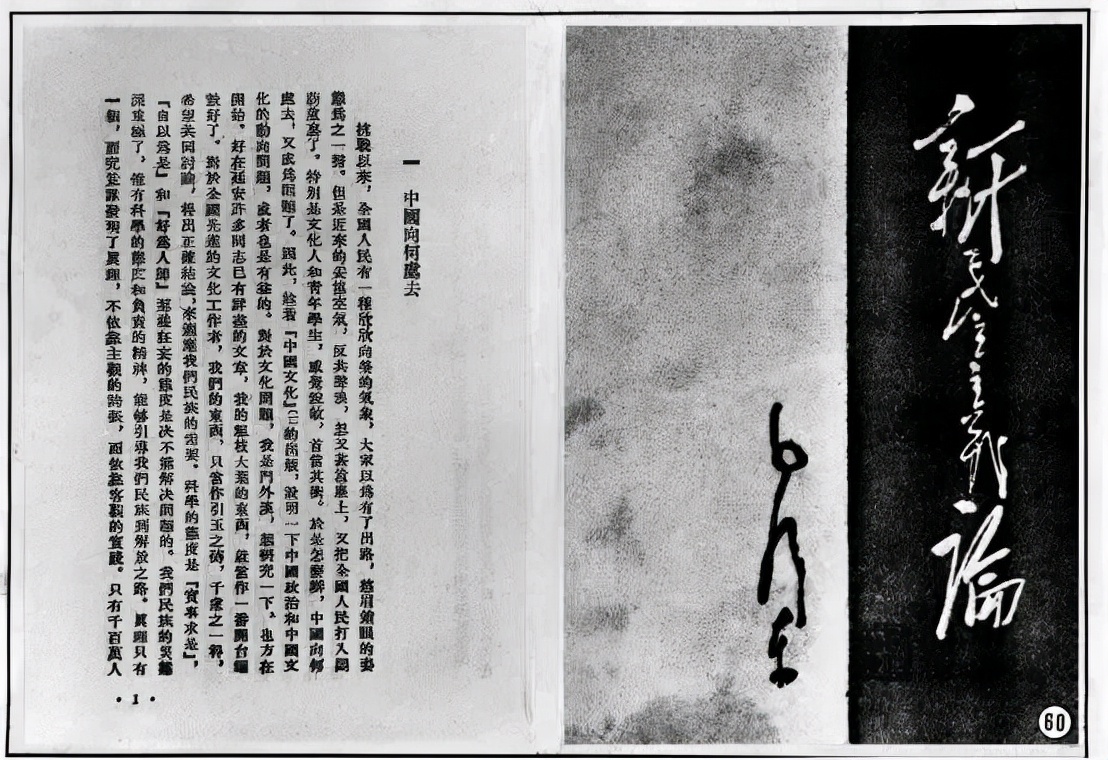 新民主主義論
毛澤東
60
一 中國向何處去
抗戰以來,全國人民有一種欣欣向榮的氣象,大家以爲有了出路,愁眉鎖眼的姿
態爲之一掃。但是近來的妥協空氣,反共聲浪,忽又甚囂塵上,又把全國人民打入悶
葫蘆裏了。特別是文化人和青年學生,感覺銳敏,首當其衝。於是怎麼辦,中國向何
處去,又成爲問題了。因此,趁着『中國文化』(一)的出版,說明一下中國政治和中國文
化的動向問題,或者也是有益的。對於文化問題,我是門外漢,想研究一下,也方在
開始。好在延安許多同志已有詳盡的文章,我的粗枝大葉的東西,就當作一番開台鑼
鼓好了。對於全國先進的文化工作者,我們的東西,只當作引玉之磚,千慮之一得,
希望共同討論,得出正確結論,來適應我們民族的需要。科學的態度是『實事求是』,
『自以爲是』和『好爲人師』那樣狂妄的態度是決不能解決問題的。我們民族的災難
深重極了,惟有科學的態度和負責的精神,能够引導我們民族到解放之路。眞理只有
一個,而究竟誰發現了眞理,不依靠主觀的誇張,而依靠客觀的實踐。只有千百萬人
• 1 •